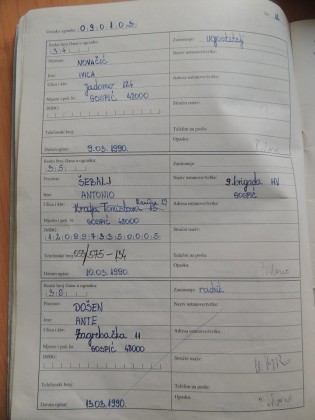 Oznaka ogranka: 0.9.0.1.0.3.
Redni broj člana u ogranku:
3.4.
Zanimanje: ugostitelj
Prezime: NOVAČIĆ
Naziv ustanove/tvrtke:
Ime: IVICA
Ulica i kbr: Jadovno 124
Adresa ustanove/tvrtke:
Mjesto i pošt. br. GOSPIĆ 48000
JMBG:
Stručni naziv:
Telefonski broj:
Telefon na poslu:
Opaska:
Datum upisa: 9.03.1990.
Redni broj člana u ogranku:
3.5.
Zanimanje:
Prezime: ŠEBALJ
Naziv ustanove/tvrtke: 9.brigada HV
GOSPIĆ
Ime: ANTONIO
Ulica i kbr: Kralja Tomislava 15
Adresa ustanove/tvrtke:
Mjesto i pošt. br. GOSPIĆ 48000
JMBG:
Stručni naziv:
Telefonski broj: 053/575-134
Telefon na poslu:
Opaska:
Datum upisa: 10.03.1990.
Redni broj člana u ogranku:
3.6.
Zanimanje: radnik
Prezime: DOŠEN
Naziv ustanove/tvrtke:
Ime: ANTE
Ulica i kbr: Zagrebačka 11
Adresa ustanove/tvrtke:
Mjesto i pošt. br. GOSPIĆ 48000
JMBG:
Stručni naziv:
Telefonski broj:
Telefon na poslu:
Opaska:
Datum upisa: 13.03.1990.